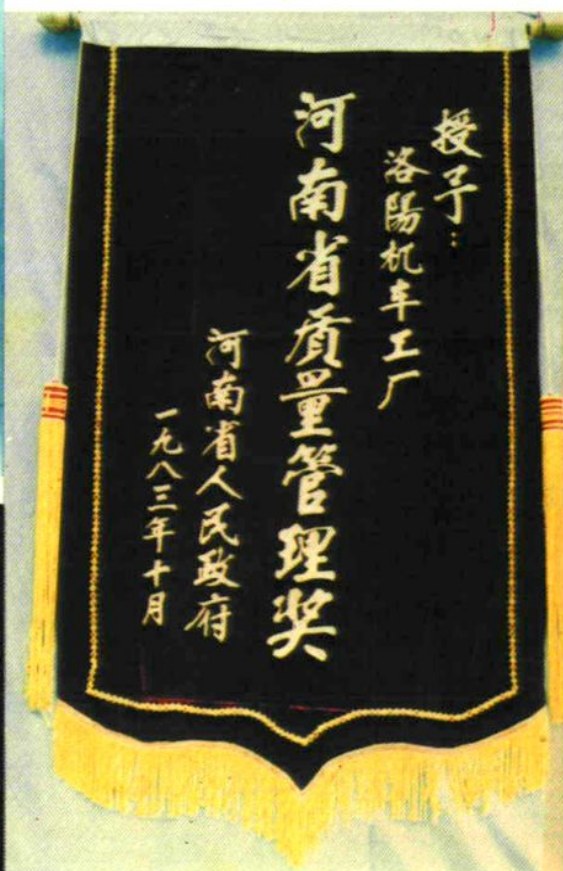 授予：
洛陽机车工厂
河南省质量管理奖
河南省人民政府
一九八三年十月